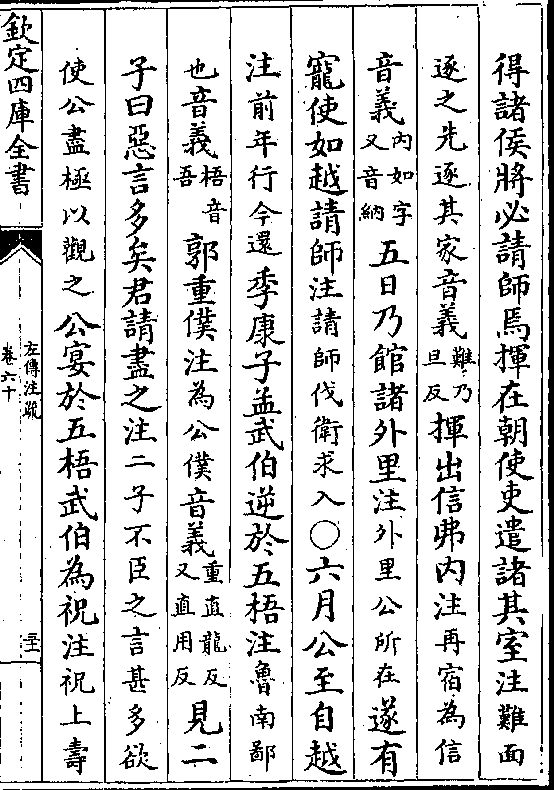 得諸侯將必請師焉揮在朝使吏遣諸其室注難面
逐之先逐其家音義難乃旦反揮出信弗内注再宿為信
音義内如字又音納五日乃館諸外里注外里公所在遂有
寵使如越請師注請師伐衛求入〇六月公至自越
注前年行今還季康子孟武伯逆於五梧注魯南鄙
也音義梧音吾郭重僕注為公僕音義重直龍反又直用反見二
子曰惡言多矣君請盡之注二子不臣之言甚多欲
使公盡極以觀之公宴於五梧武伯為祝注祝上壽
欽定四庫全書
左傳注疏
卷六十